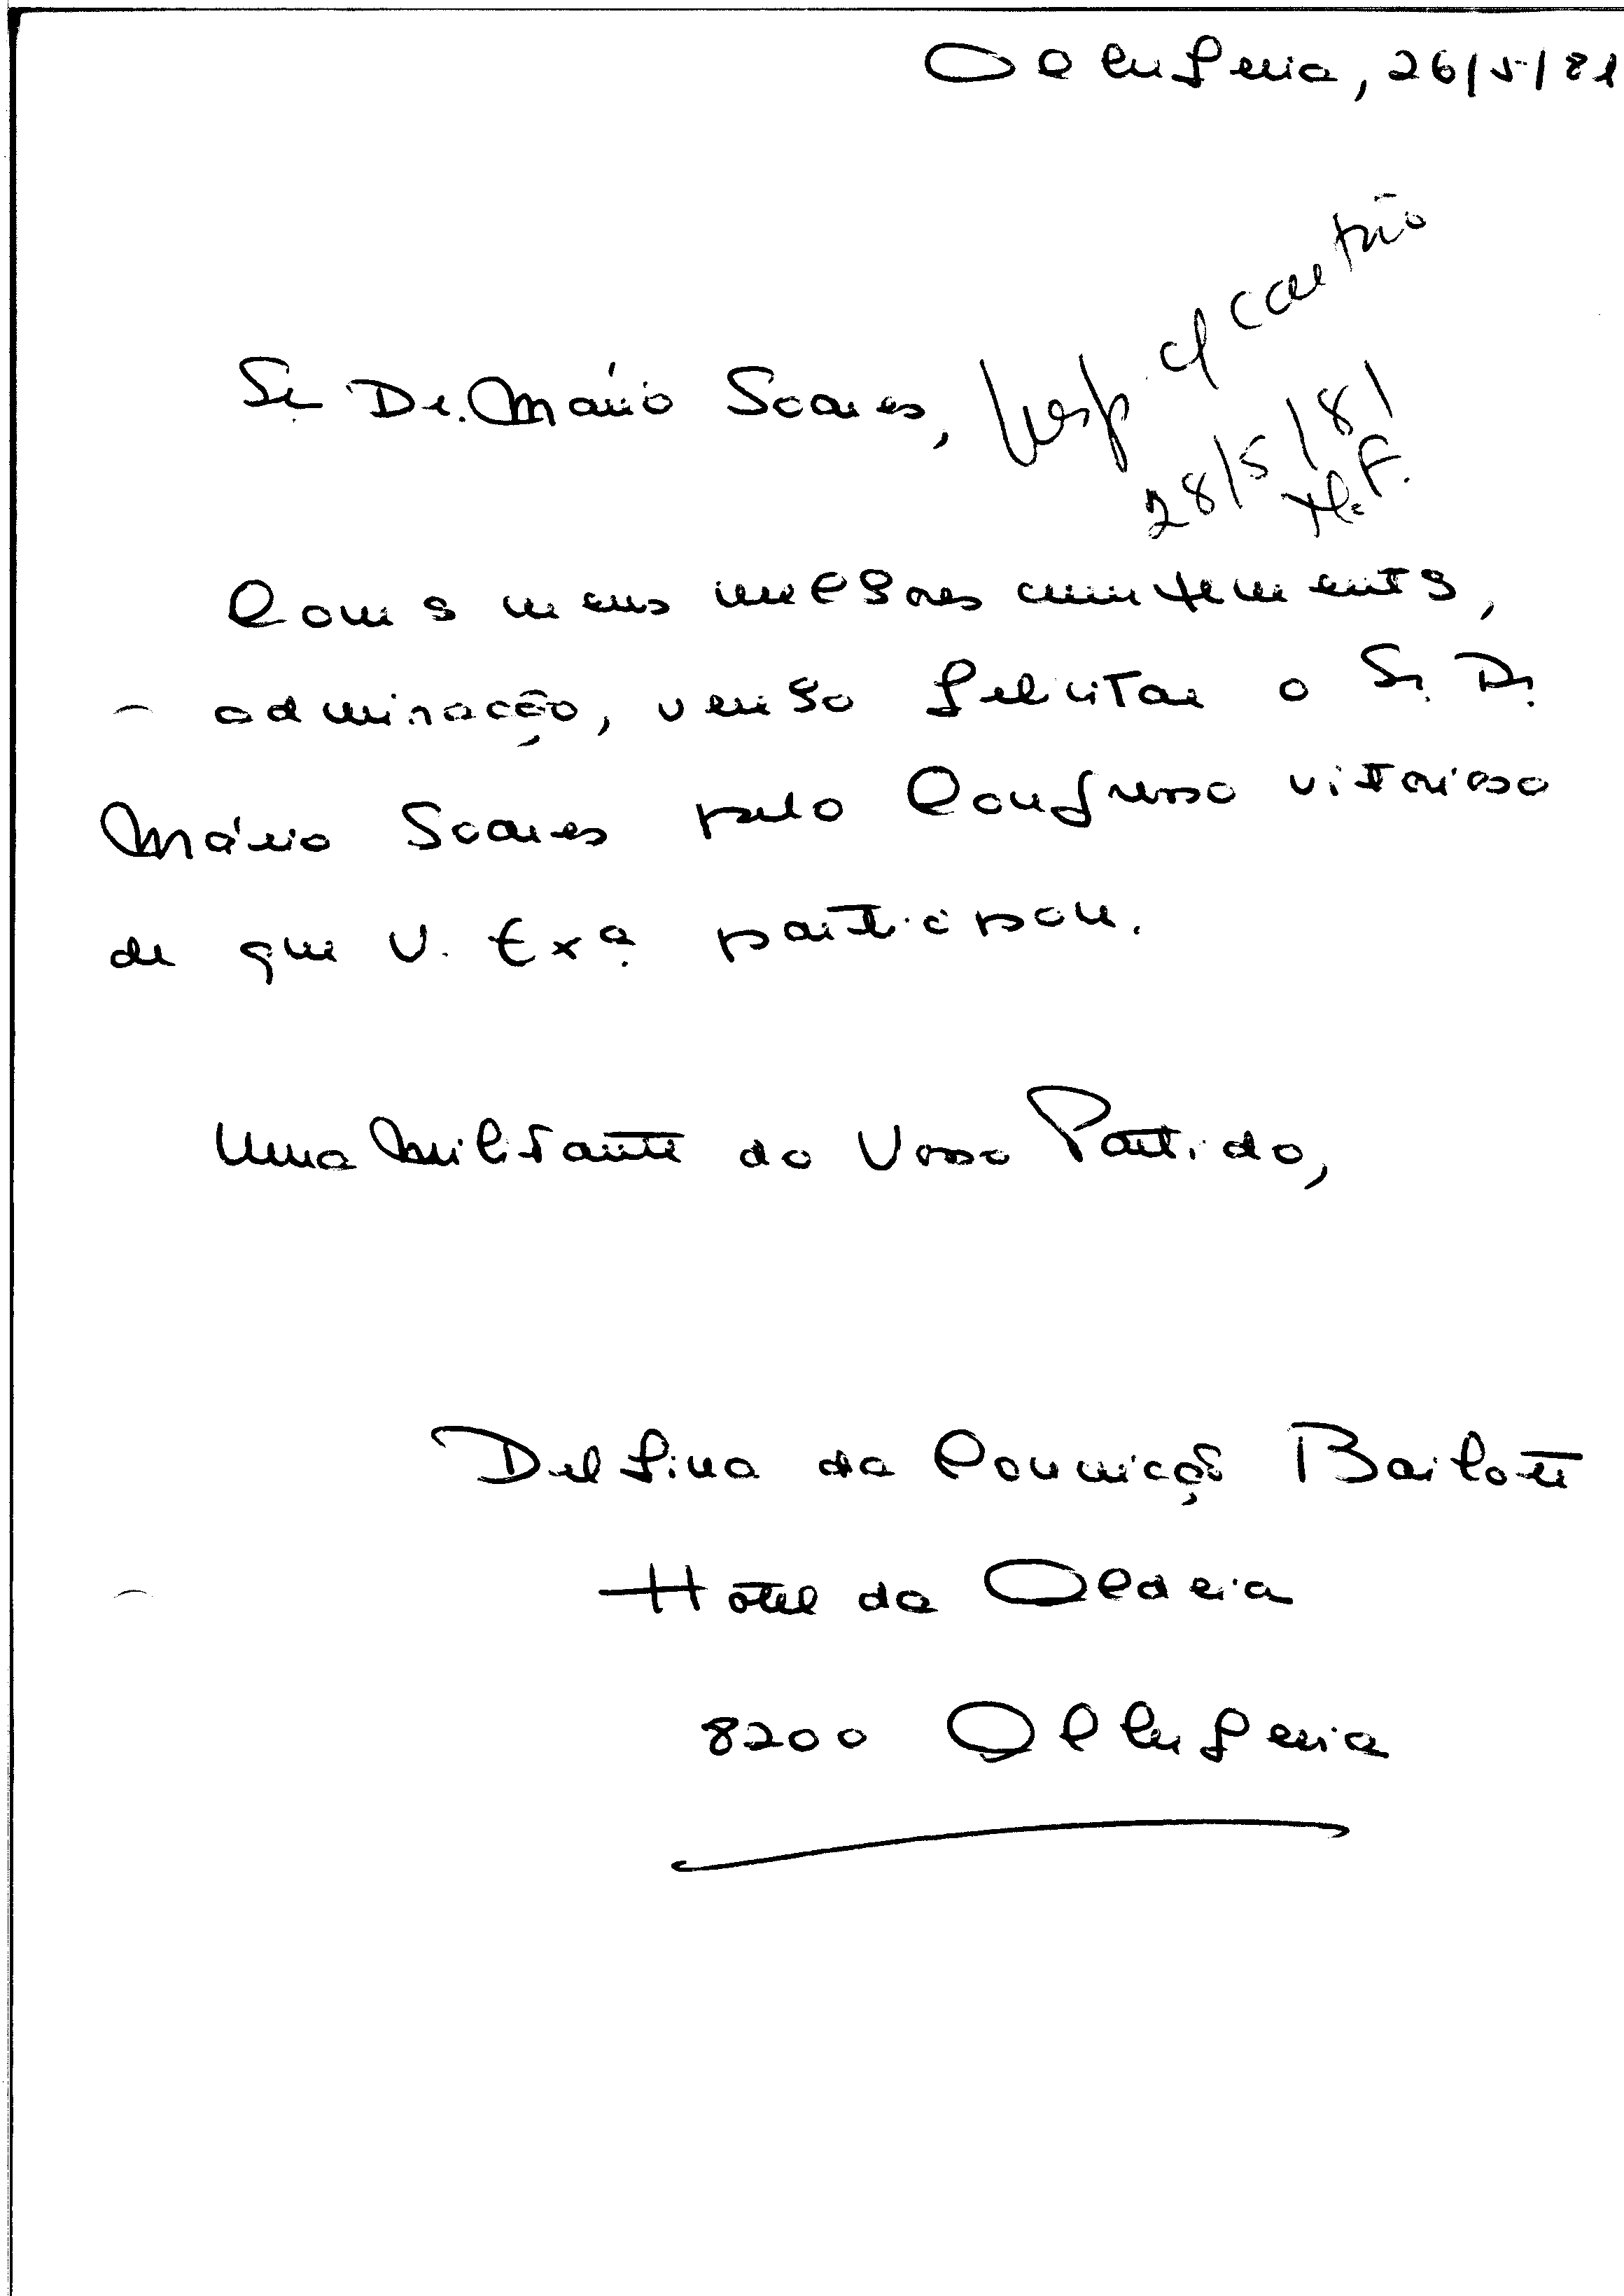 Albufeira, 26/5/81
Resp. c/ cartão
28/5/81
M.F.
Sr Dr. Mário Soares,
Com os meus melhores cumprimentos,
admiração, venho felicitar o Sr. Dr.
Mário Soares pelo Congresso vitorioso
de que V. Exª participou.
Uma Militante do Vosso Partido,
Delfina da Conceição
Hotel da Aldeia
8200 Albufeira